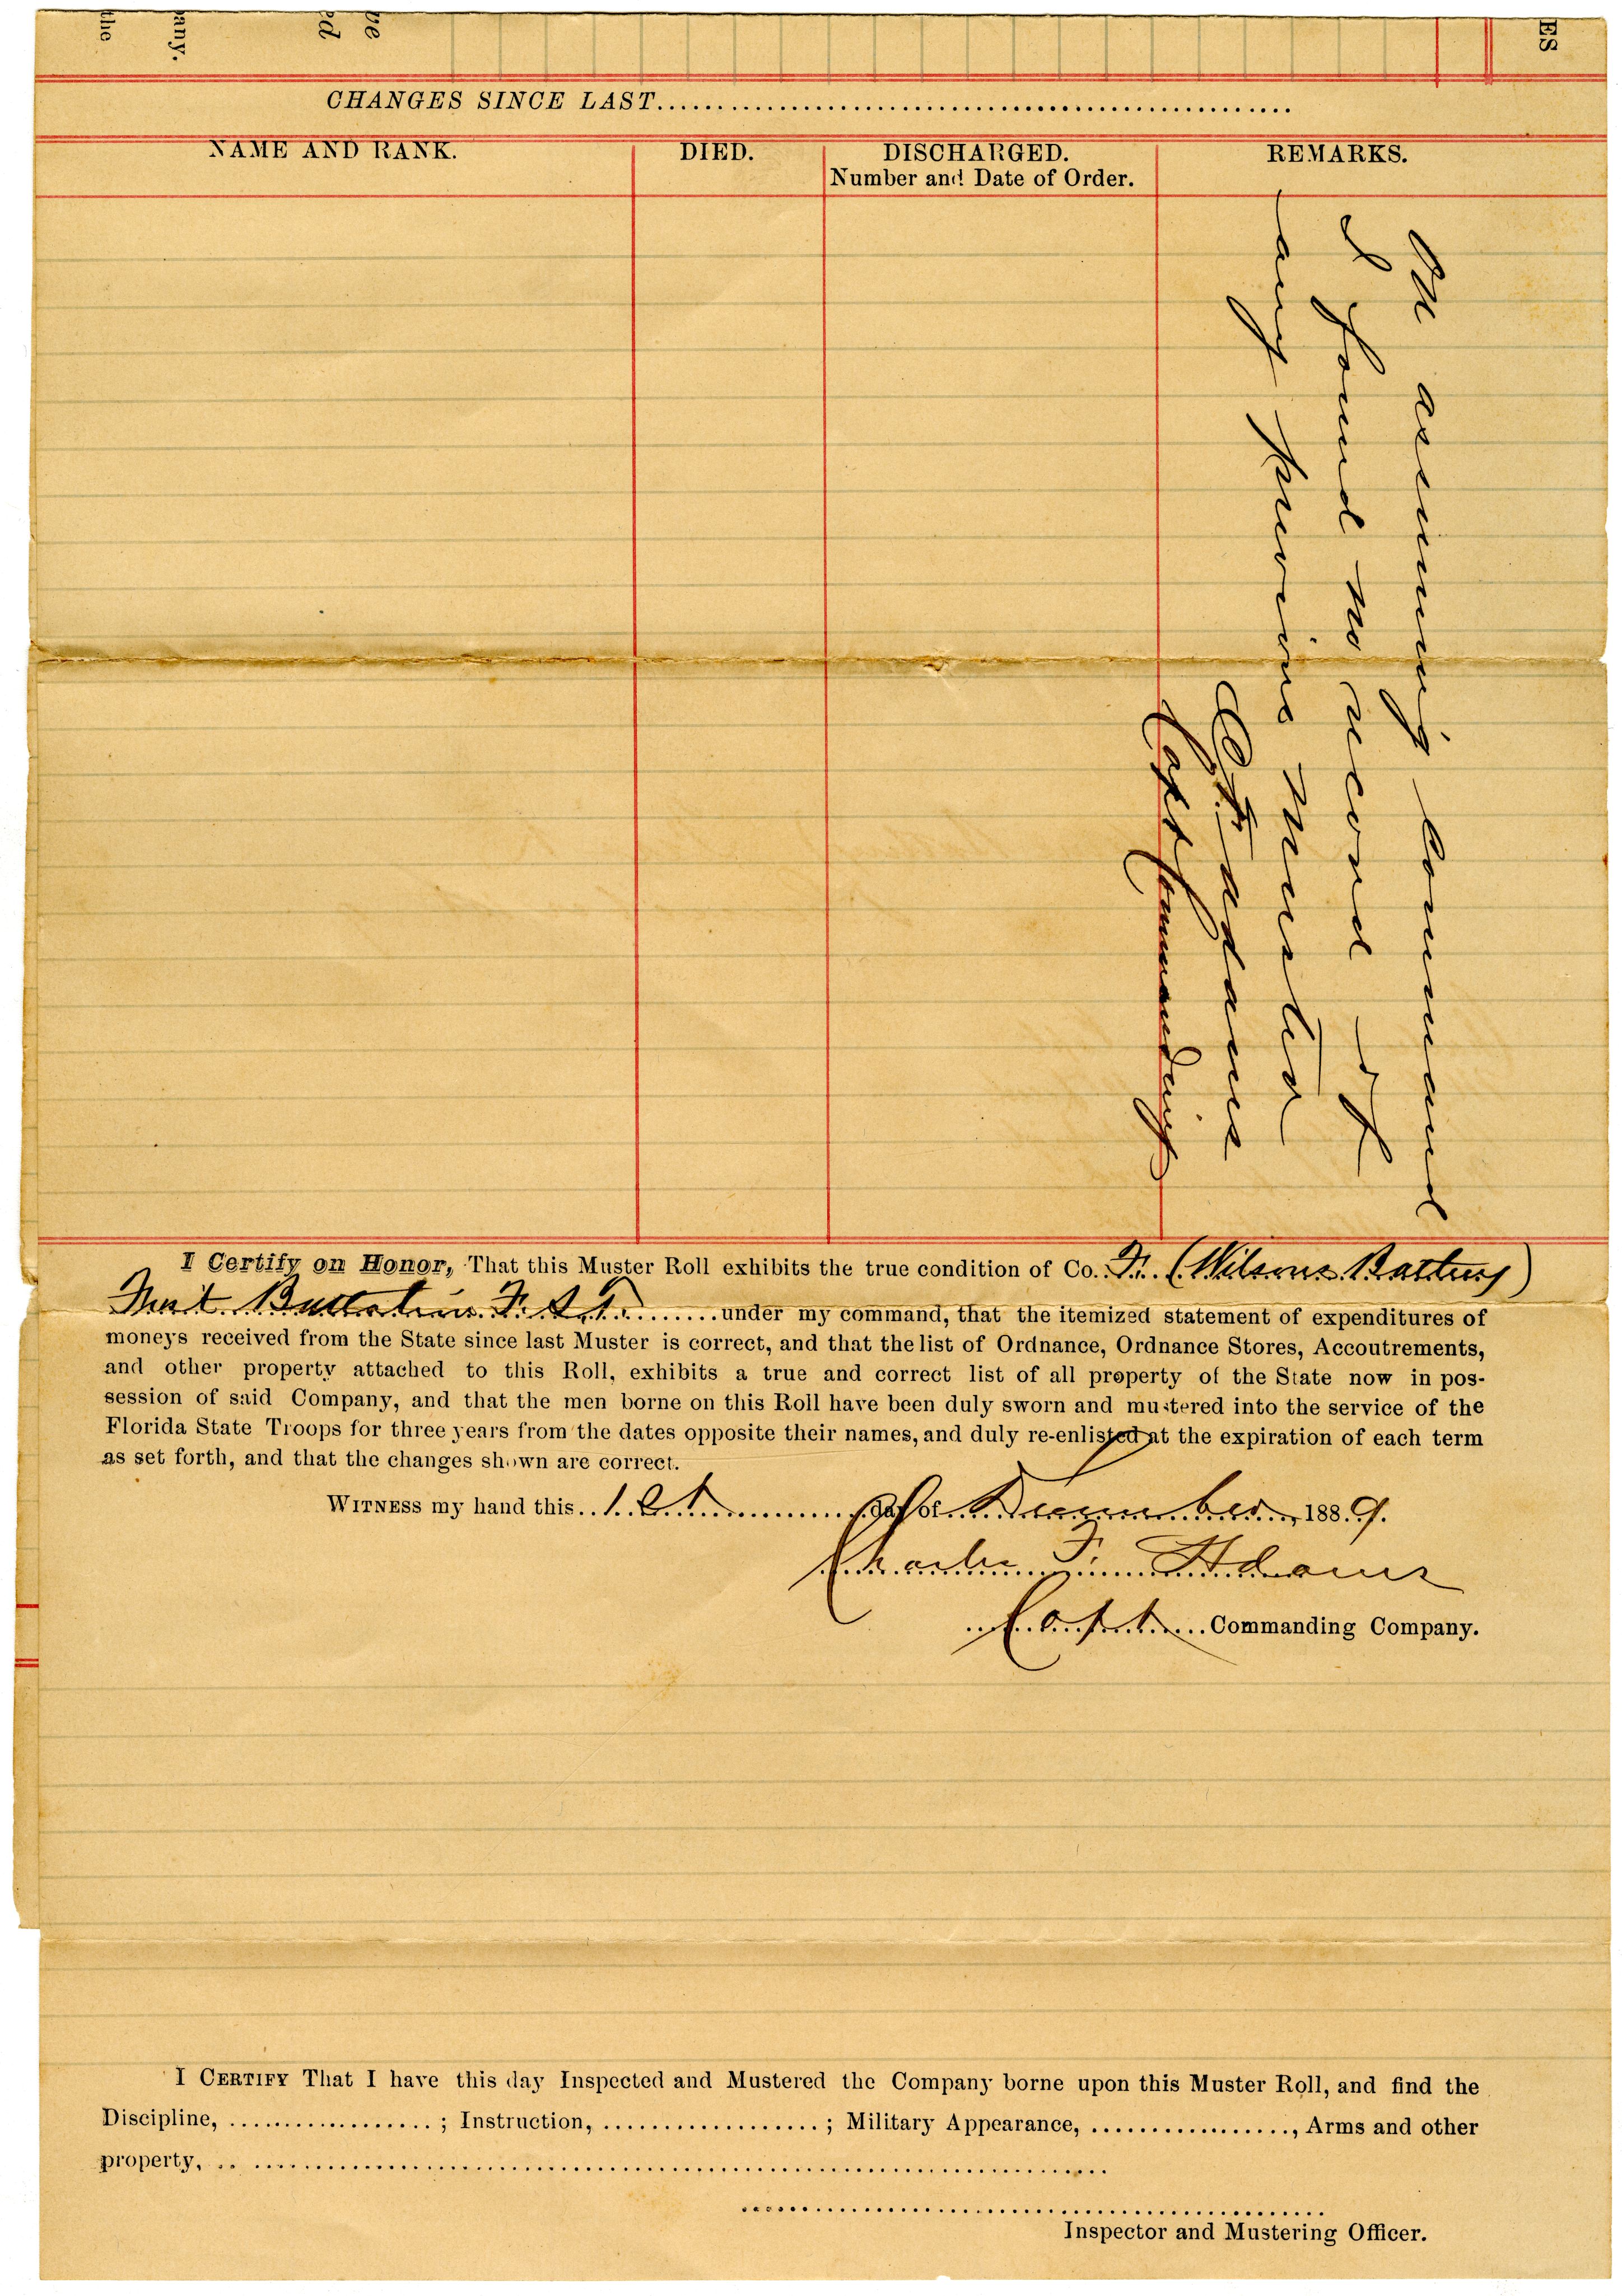 the
any.
ed
ve
ES
CHANGES SINCE LAST
NAME AND RANK. DIED. DISCHARGED. REMARKS.
Number and Date of Order.
On assuming Command
I found no record of
any previous muster
C F Adams
Capt Commanding
I Certify on Honor, That this Muster Roll exhibits the true condition of Co. F. (Wilsons Battery)
First Battalion F. S. T. under my command, that the itemized statement of expenditures of
moneys received from the State since last Muster is correct, and that the list of Ordnance, Ordnance Stores, Accoutrements,
and other property attached to this Roll, exhibits a true and correct list of all property of the State now in pos-
session of said Company, and that the men borne on this Roll have been duly sworn and mustered into the service of the
Florida State Troops for three years from the dates opposite their names, and duly re-enlisted at the expiration of each term
as set forth, and that the changes shown are correct.
WITNESS my hand this 1st day of December, 1889.
Charles F. Adams
Capt. Commanding Company.
I CERTIFY That I have this day Inspected and Mustered the Company borne upon this Muster Roll, and find the
Discipline, ; Instruction, ; Military Appearance, , Arms and other
property,
Inspector and Mustering Officer.